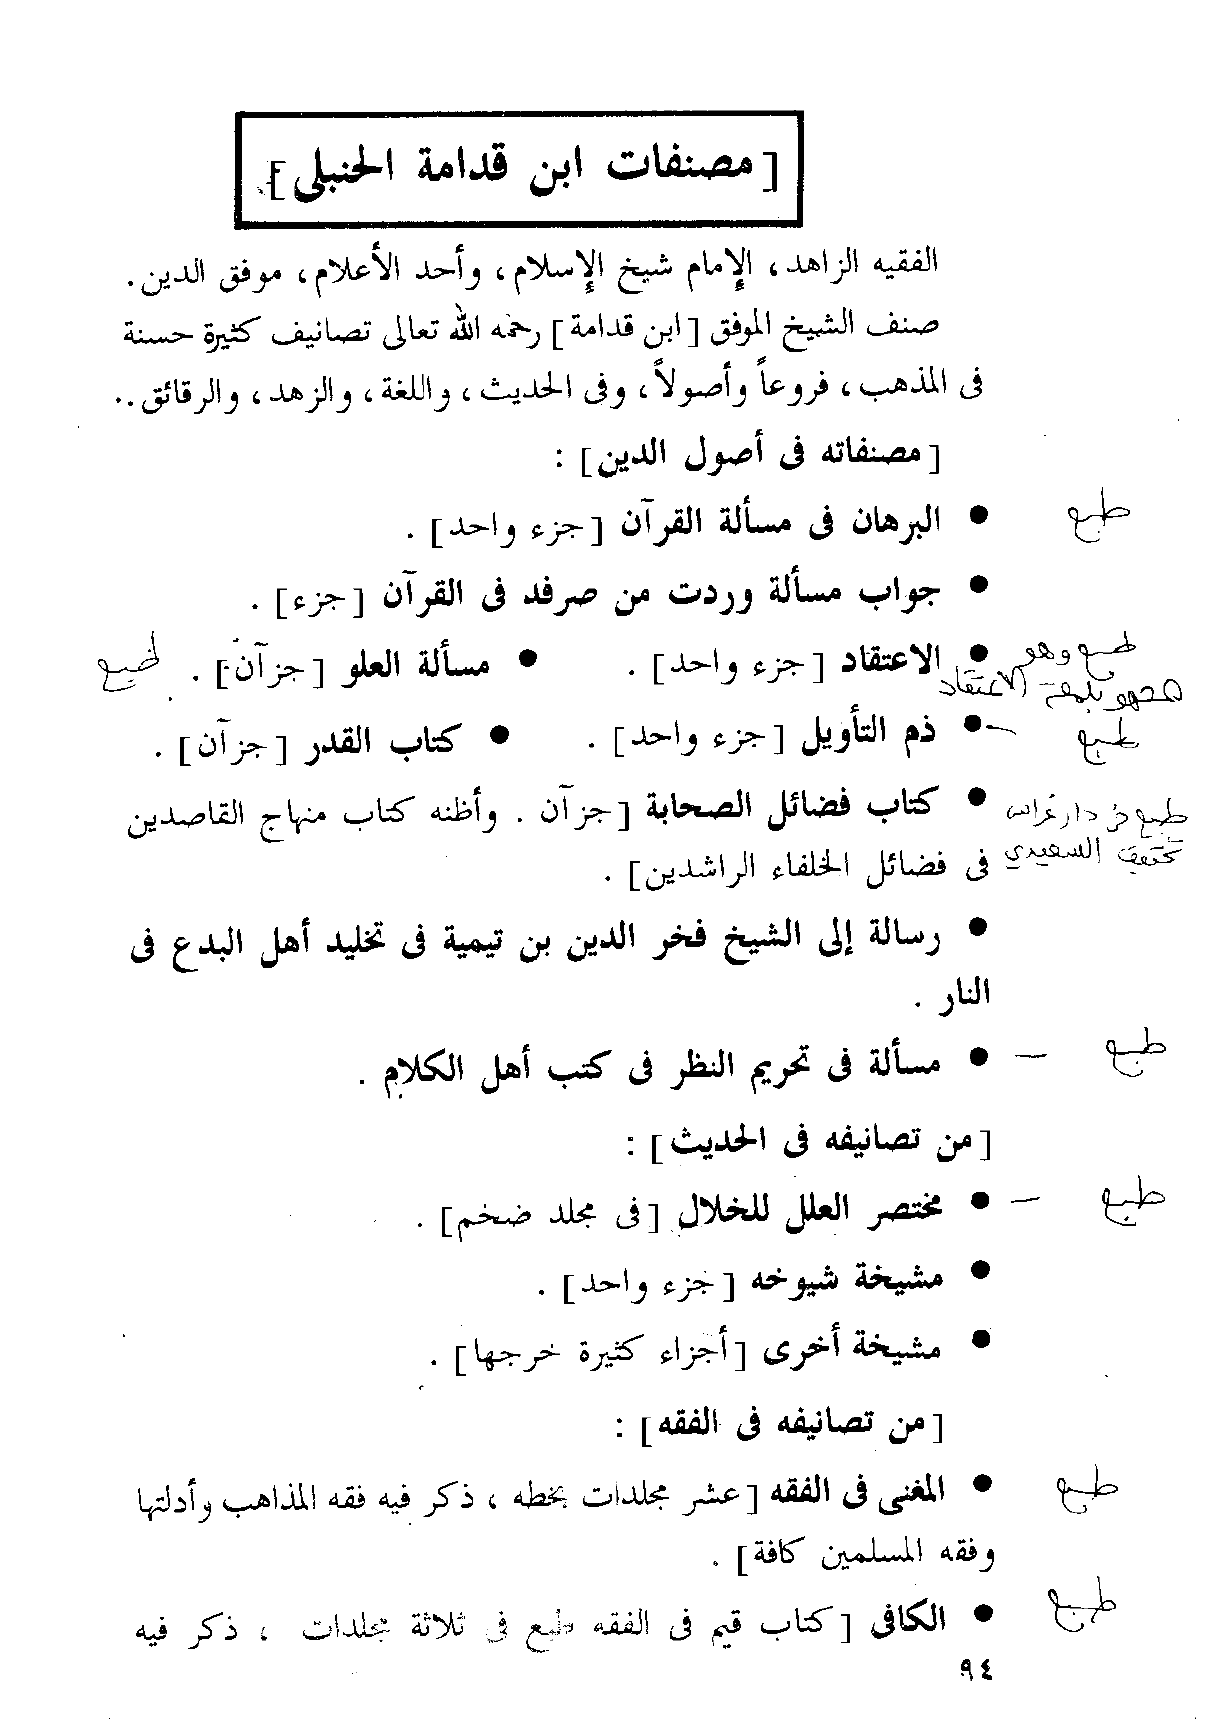 [ مصنفات ابن قدامة الحنبلى ]
الفقيه الزاهد، الإمام شيخ الإسلام، وأحد الأعلام، موفق الدين.
صنف الشيخ الموفق [ابن قدامة] رحمه الله تعالى تصانيف كثيرة حسنة
فى المذهب، فروعاً وأصولاً، وفى الحديث، واللغة، والزهد، والرقائق..
[مصنفاته فى أصول الدين] :
طبع ● البرهان فى مسألة القرآن [جزء واحد] .
● جواب مسألة وردت من صرفد فى القرآن [جزء] .
طبع وهو ● الاعتقاد [جزء واحد] . ● مسألة العلو [جزآن] . طبع
بلمعة الاعتقاد
طبع – ● ذم التأويل [جزء واحد] . ● كتاب القدر [جزآن] .
طبع فى دار غراس ● كتاب فضائل الصحابة [جزآن . وأظنه كتاب منهاج القاصدين
تحقيق السعيدي فى فضائل الخلفاء الراشدين] .
● رسالة إلى الشيخ فخر الدين بن تيمية فى تخليد أهل البدع فى
النار .
طبع – ● مسألة فى تحريم النظر فى كتب أهل الكلام .
[من تصانيفه فى الحديث] :
طبع – ● مختصر العلل للخلال [فى مجلد ضخم] .
● مشيخة شيوخه [جزء واحد] .
● مشيخة أخرى [أجزاء كثيرة خرجها] .
[من تصانيفه فى الفقه] :
طبع ● المغنى فى الفقه [عشر مجلدات بخطه ، ذكر فيه فقه المذاهب وأدلتها
وفقه المسلمين كافة] .
طبع ● الكافى [كتاب قيم فى الفقه طبع فى ثلاثة مجلدات ، ذكر فيه
٩٤